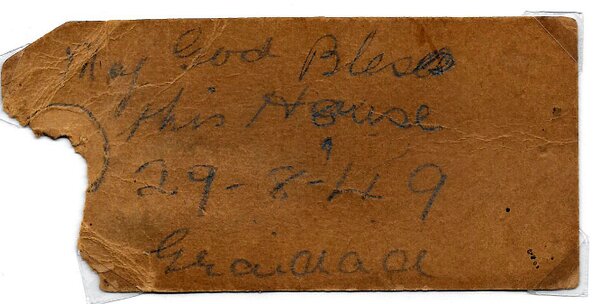 May God Bless
this House
29-8-49
Grandad